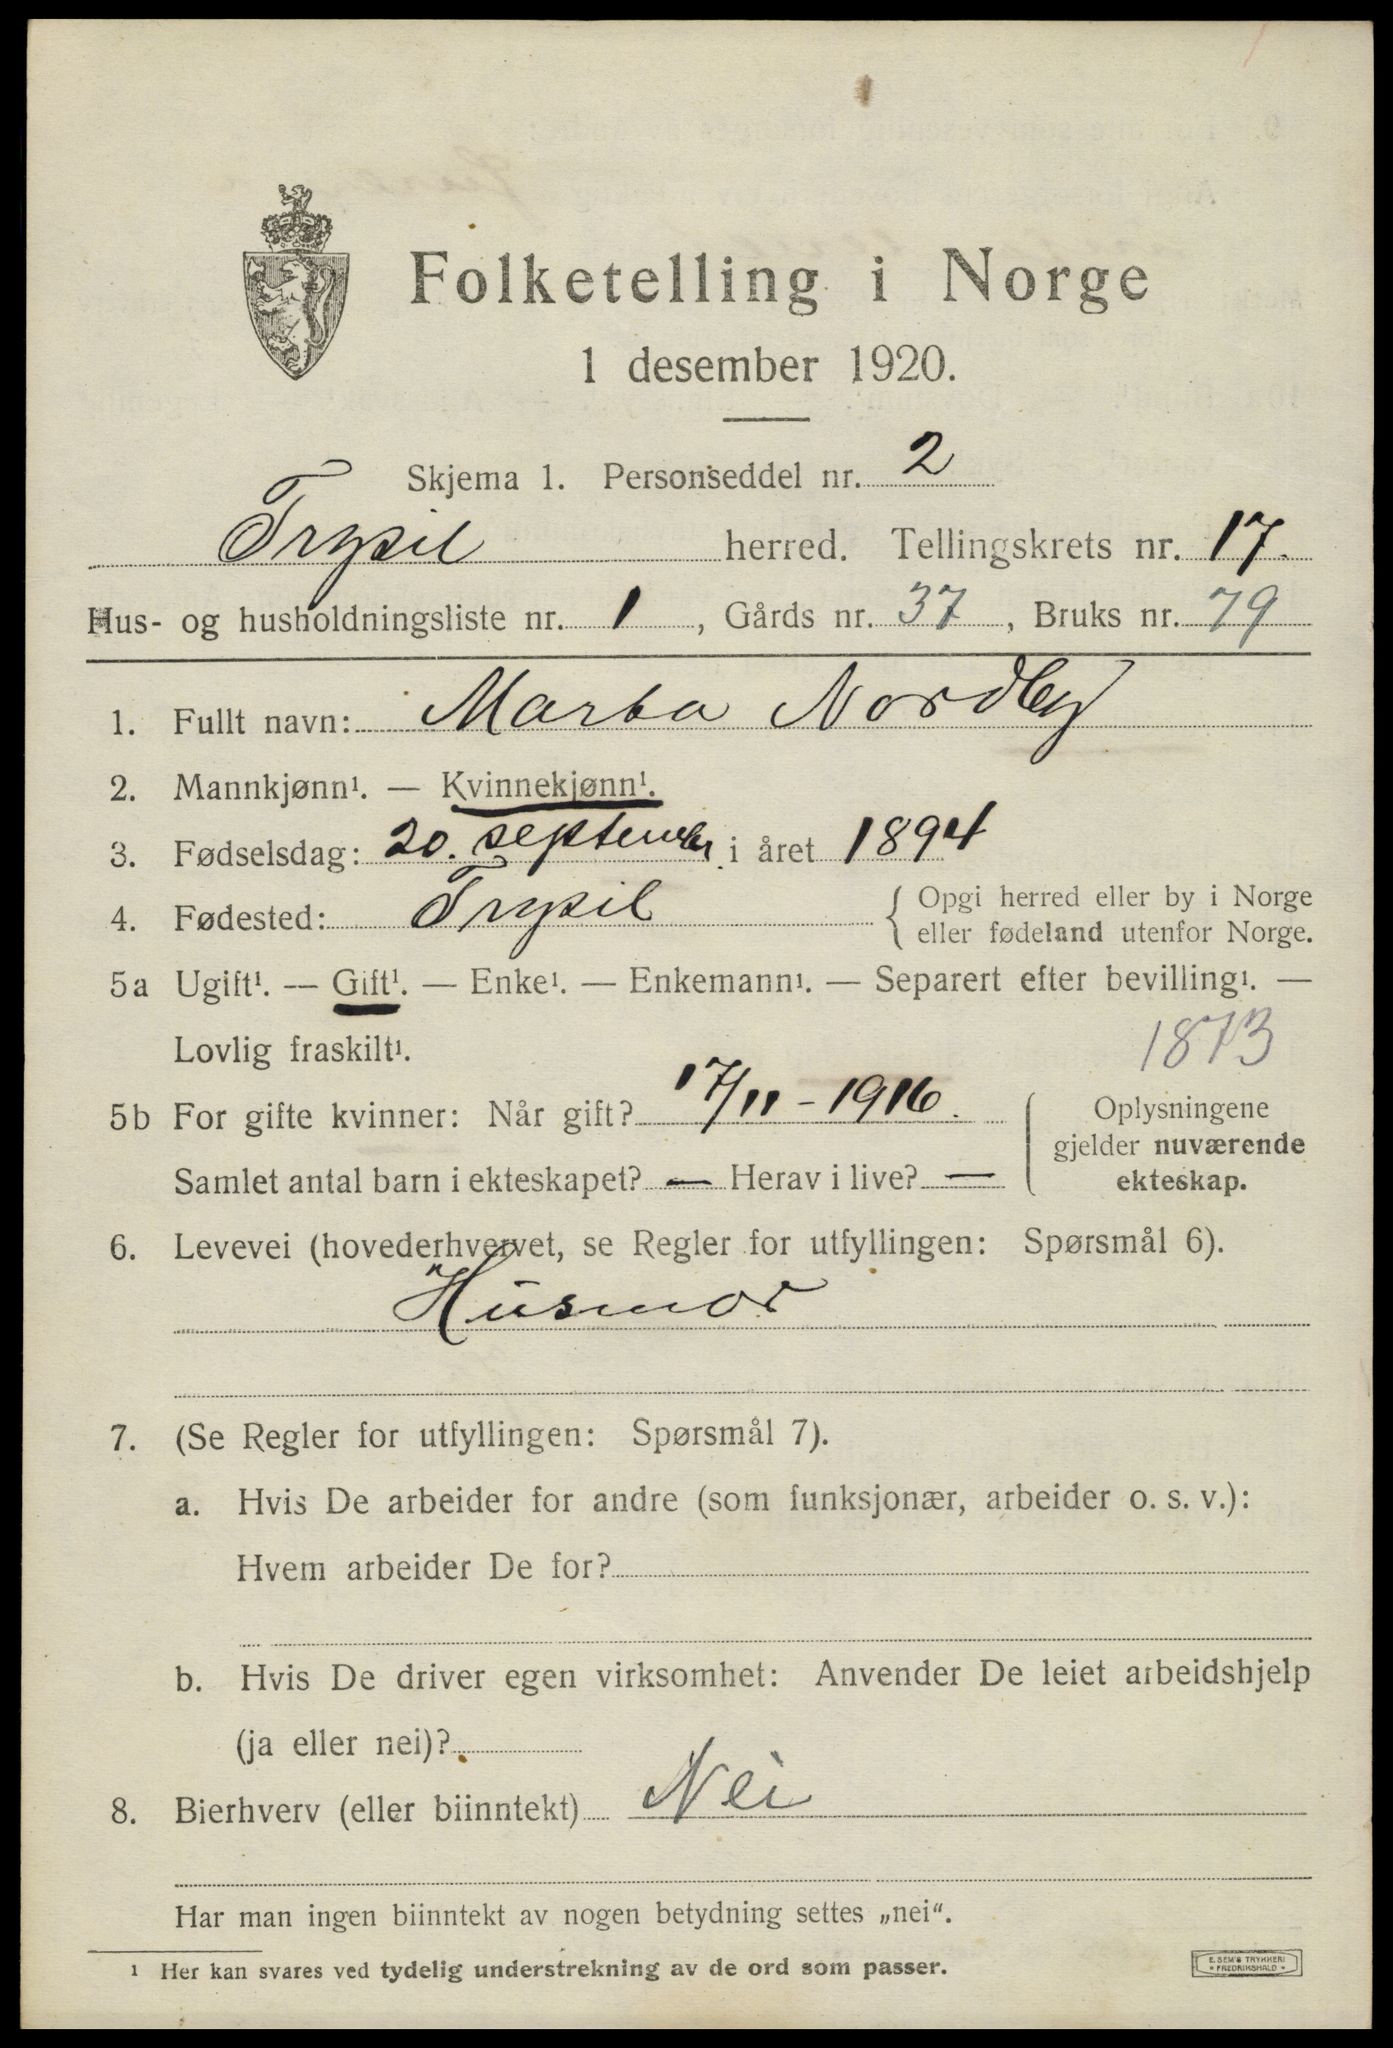 Folketelling i Norge
1 desember 1920.
Skjema 1. Personseddel nr. 2
Trysil herred. Tellingskrets nr. 17.
Hus- og husholdningsliste nr. 1, Gårds nr. 37, Bruks nr. 79
1. Fullt navn: Marta Nordby
2. Mannkjønn¹. — Kvinnekjønn¹.
3. Fødselsdag: 20. september i året 1894
4. Fødested: Trysil { Opgi herred eller by i Norge
eller fødeland utenfor Norge.
5a Ugift¹. — Gift¹. — Enke¹. — Enkemann¹. — Separert efter bevilling¹. —
Lovlig fraskilt¹.
1873
5b For gifte kvinner: Når gift? 17/11-1916.
Samlet antal barn i ekteskapet? — Herav i live? —
{ Oplysningene
gjelder nuværende
ekteskap.
6. Levevei (hovederhvervet, se Regler for utfyllingen: Spørsmål 6).
Husmor
7. (Se Regler for utfyllingen: Spørsmål 7).
a. Hvis De arbeider for andre (som funksjonær, arbeider o. s. v.):
Hvem arbeider De for?
b. Hvis De driver egen virksomhet: Anvender De leiet arbeidshjelp
(ja eller nei)?
8. Bierhverv (eller biinntekt) Nei
Har man ingen biinntekt av nogen betydning settes „nei“.
¹ Her kan svares ved tydelig understrekning av de ord som passer.
E. SEM'S TRYKKERI
* FREDRIKSHALD *